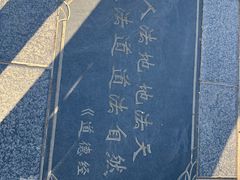 人法地地法天
法道道法自然
《道德经